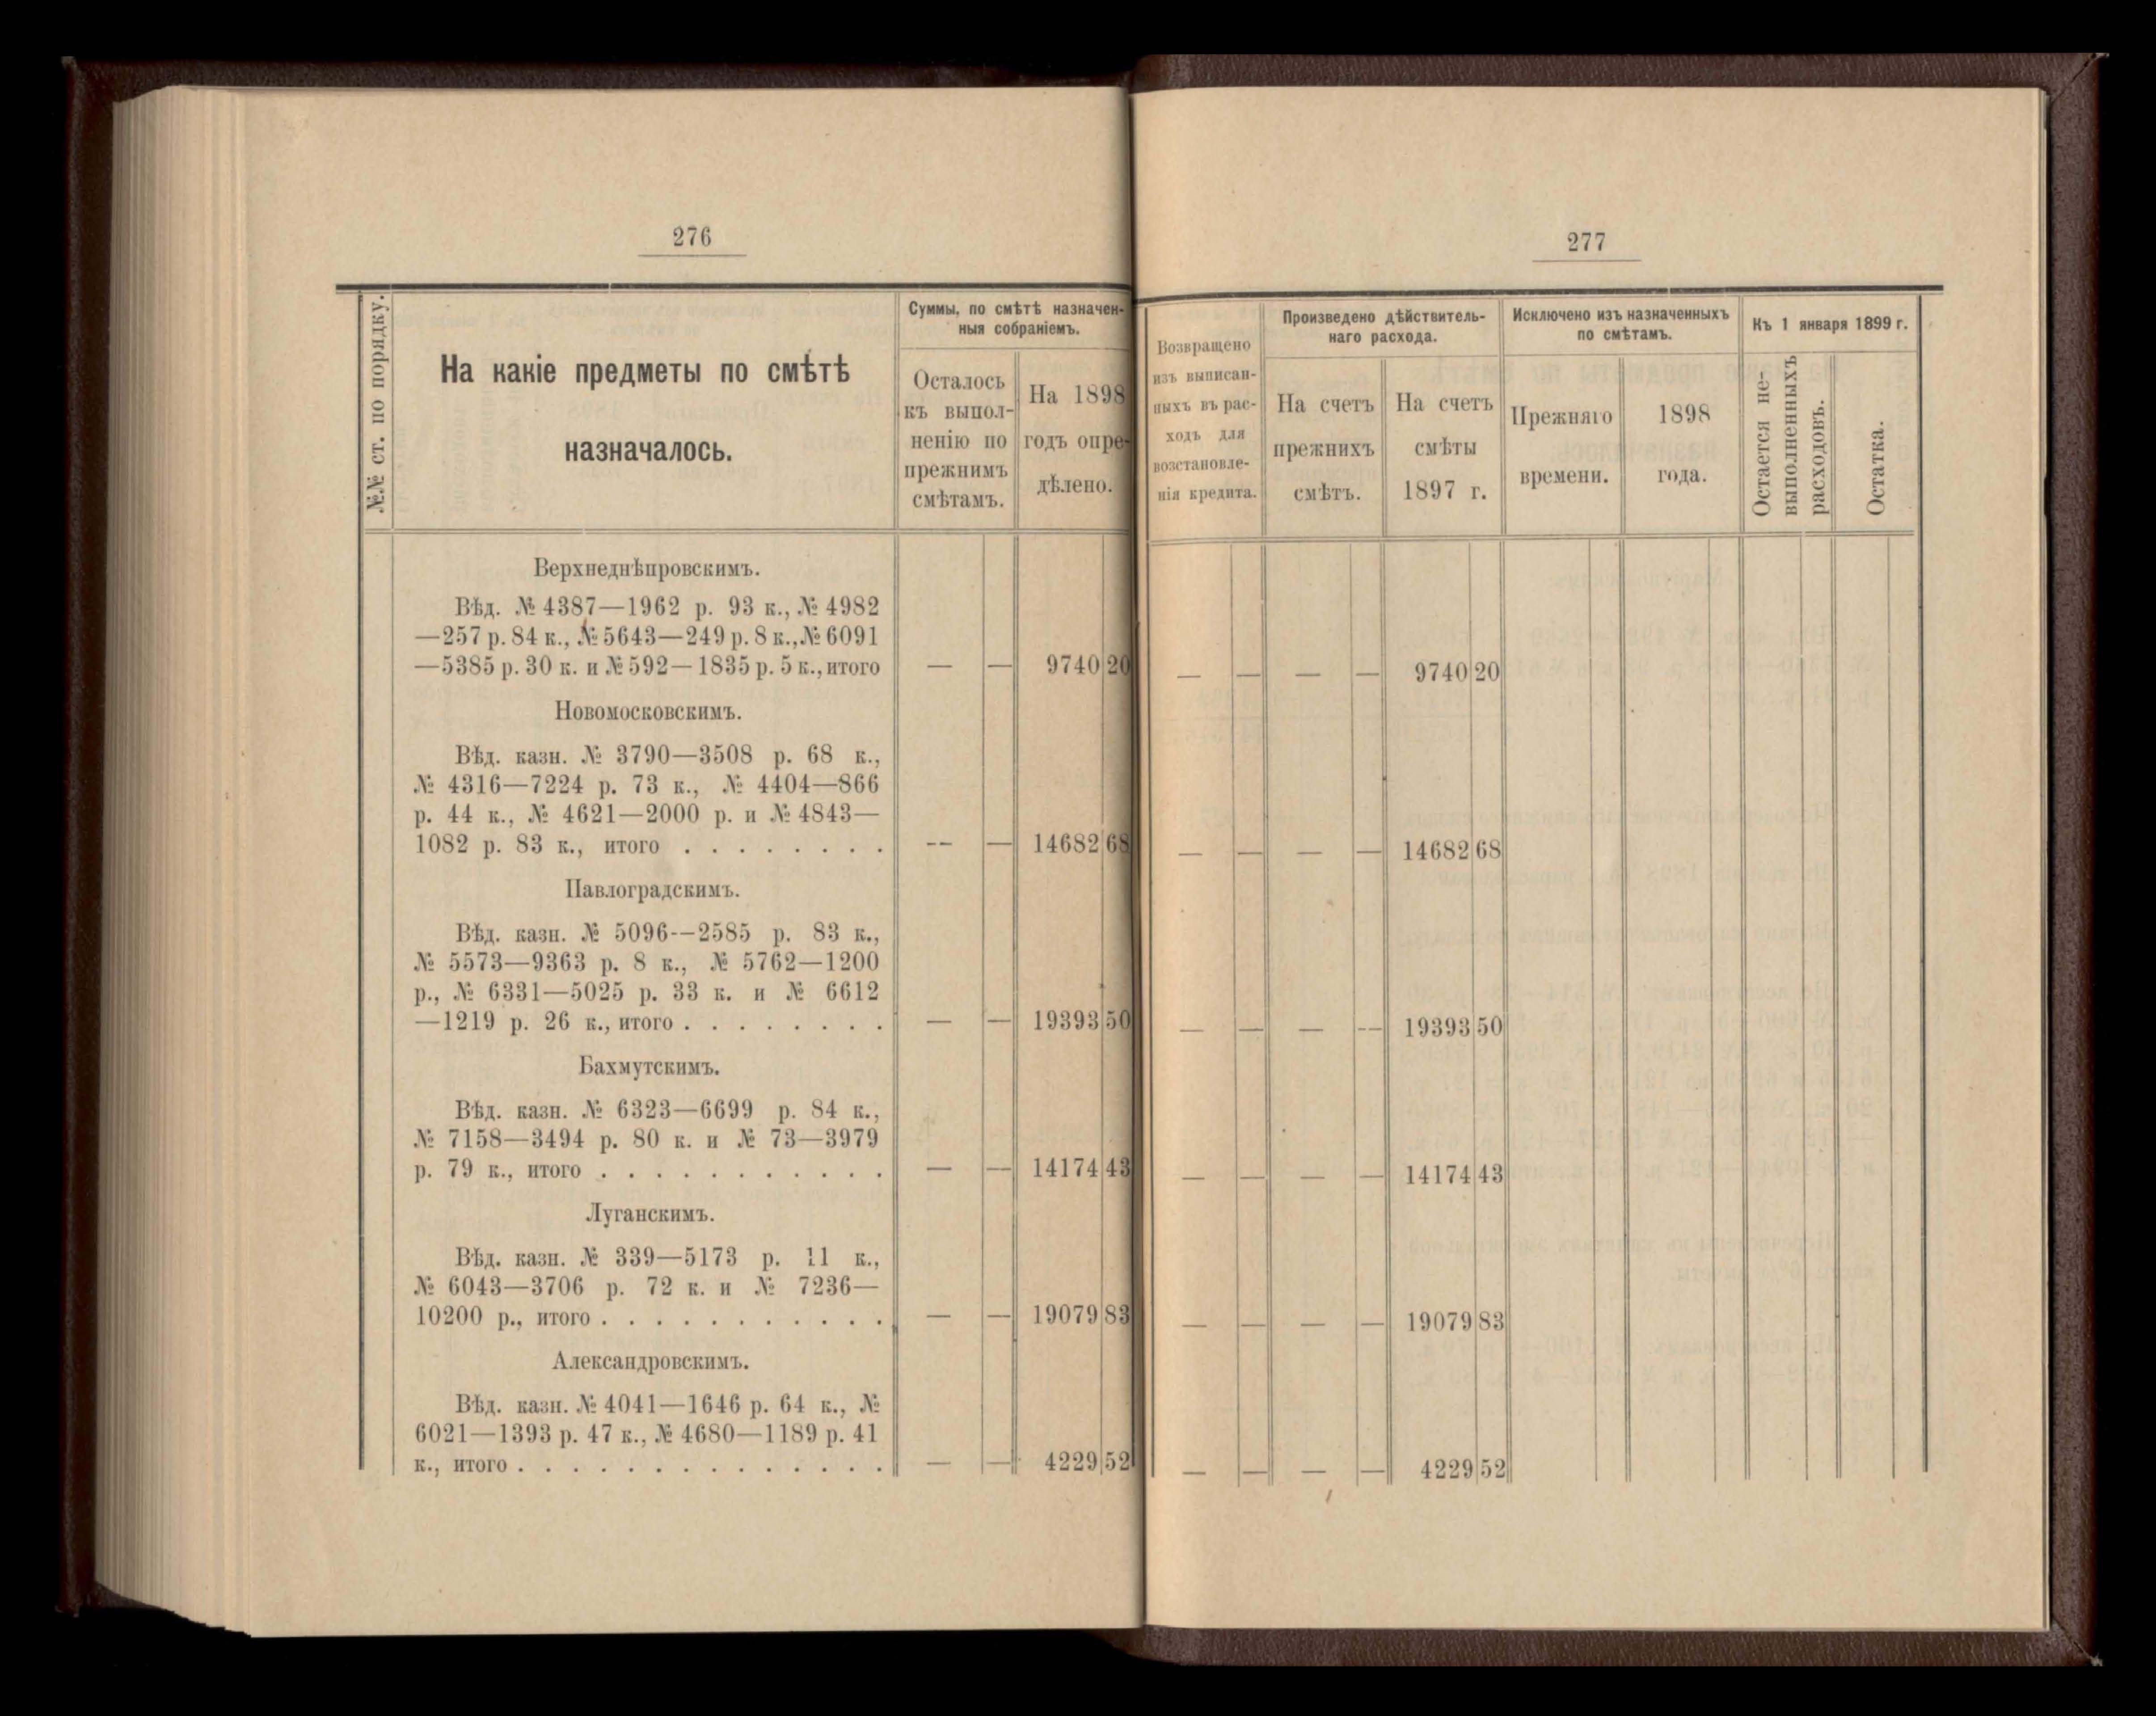 276
№№ ст. по порядку.
На какіе предметы по смѣтѣ
назначалось.
Суммы, по смѣтѣ назначен-
ныя собраніемъ.
Осталось
къ выпол-
ненію по
прежнимъ
смѣтамъ.
На 1898
годъ опре-
дѣлено.
Верхнеднѣпровскимъ.
Вѣд. № 4387—1962 р. 93 к., № 4982
—257 р. 84 к., № 5643—249 р. 8 к., № 6091
—5385 р. 30 к. и № 592—1835 р. 5 к., итого — — 9740 20
Новомосковскимъ.
Вѣд. казн. № 3790—3508 р. 68 к.,
№ 4316—7224 р. 73 к., № 4404—866
р. 44 к., № 4621—2000 р. и № 4843—
1082 р. 83 к., итого . . . . . . . . -- — 14682 68
Павлоградскимъ.
Вѣд. казн. № 5096--2585 р. 83 к.,
№ 5573—9363 р. 8 к., № 5762—1200
р., № 6331—5025 р. 33 к. и № 6612
—1219 р. 26 к., итого . . . . . . . . — — 19393 50
Бахмутскимъ.
Вѣд. казн. № 6323—6699 р. 84 к.,
№ 7158—3494 р. 80 к. и № 73—3979
р. 79 к., итого . . . . . . . . . . . — — 14174 43
Луганскимъ.
Вѣд. казн. № 339—5173 р. 11 к.,
№ 6043—3706 р. 72 к. и № 7236—
10200 р., итого . . . . . . . . . . . — — 19079 83
Александровскимъ.
Вѣд. казн. № 4041—1646 р. 64 к., №
6021—1393 р. 47 к., № 4680—1189 р. 41
к., итого . . . . . . . . . . . . . . — — 4229 52
277
Возвращено
изъ выписан-
ныхъ въ рас-
ходъ для
возстановле-
нія кредита.
Произведено дѣйствитель-
наго расхода.
На счетъ
прежнихъ
смѣтъ.
На счетъ
смѣты
1897 г.
Исключено изъ назначенныхъ
по смѣтамъ.
Прежняго
времени.
1898
года.
Къ 1 января 1899 г.
Остается не-
выполненныхъ
расходовъ.
Остатка.
— — — — 9740 20
— — — — 14682 68
— — — -- 19393 50
— — — — 14174 43
— — — — 19079 83
— — — — 4229 52